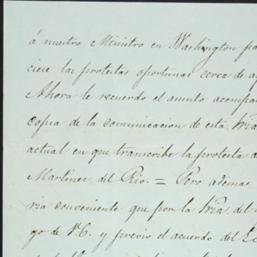 á nuestro Ministro en Washington pa
ciese las protestas oportunas cerca de aq
Ahora le recuerdo el asunto acompañ
copia de la comunicacion de esta Sría
actual en que transcribe la protesta d
Martinez del Rio. = Pero ademas
ria conveniente que por la Sría del
go de V.E. y previo el acuerdo del